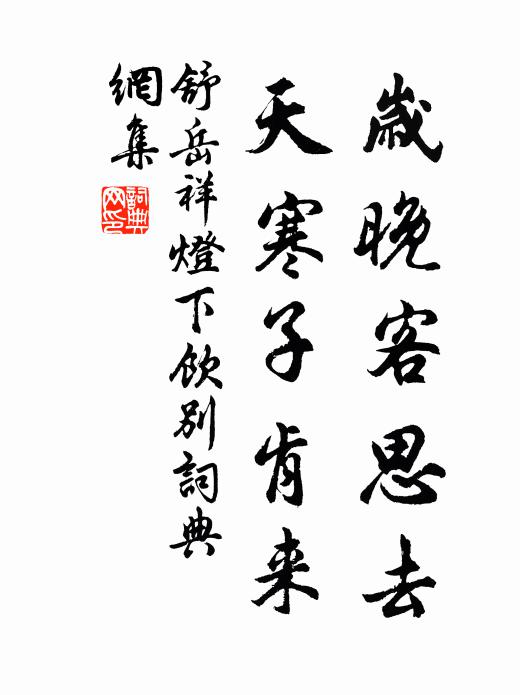 歲晚客思去
天寒子肯来
舒岳祥燈下飲別詞典
網集
詞典
网印